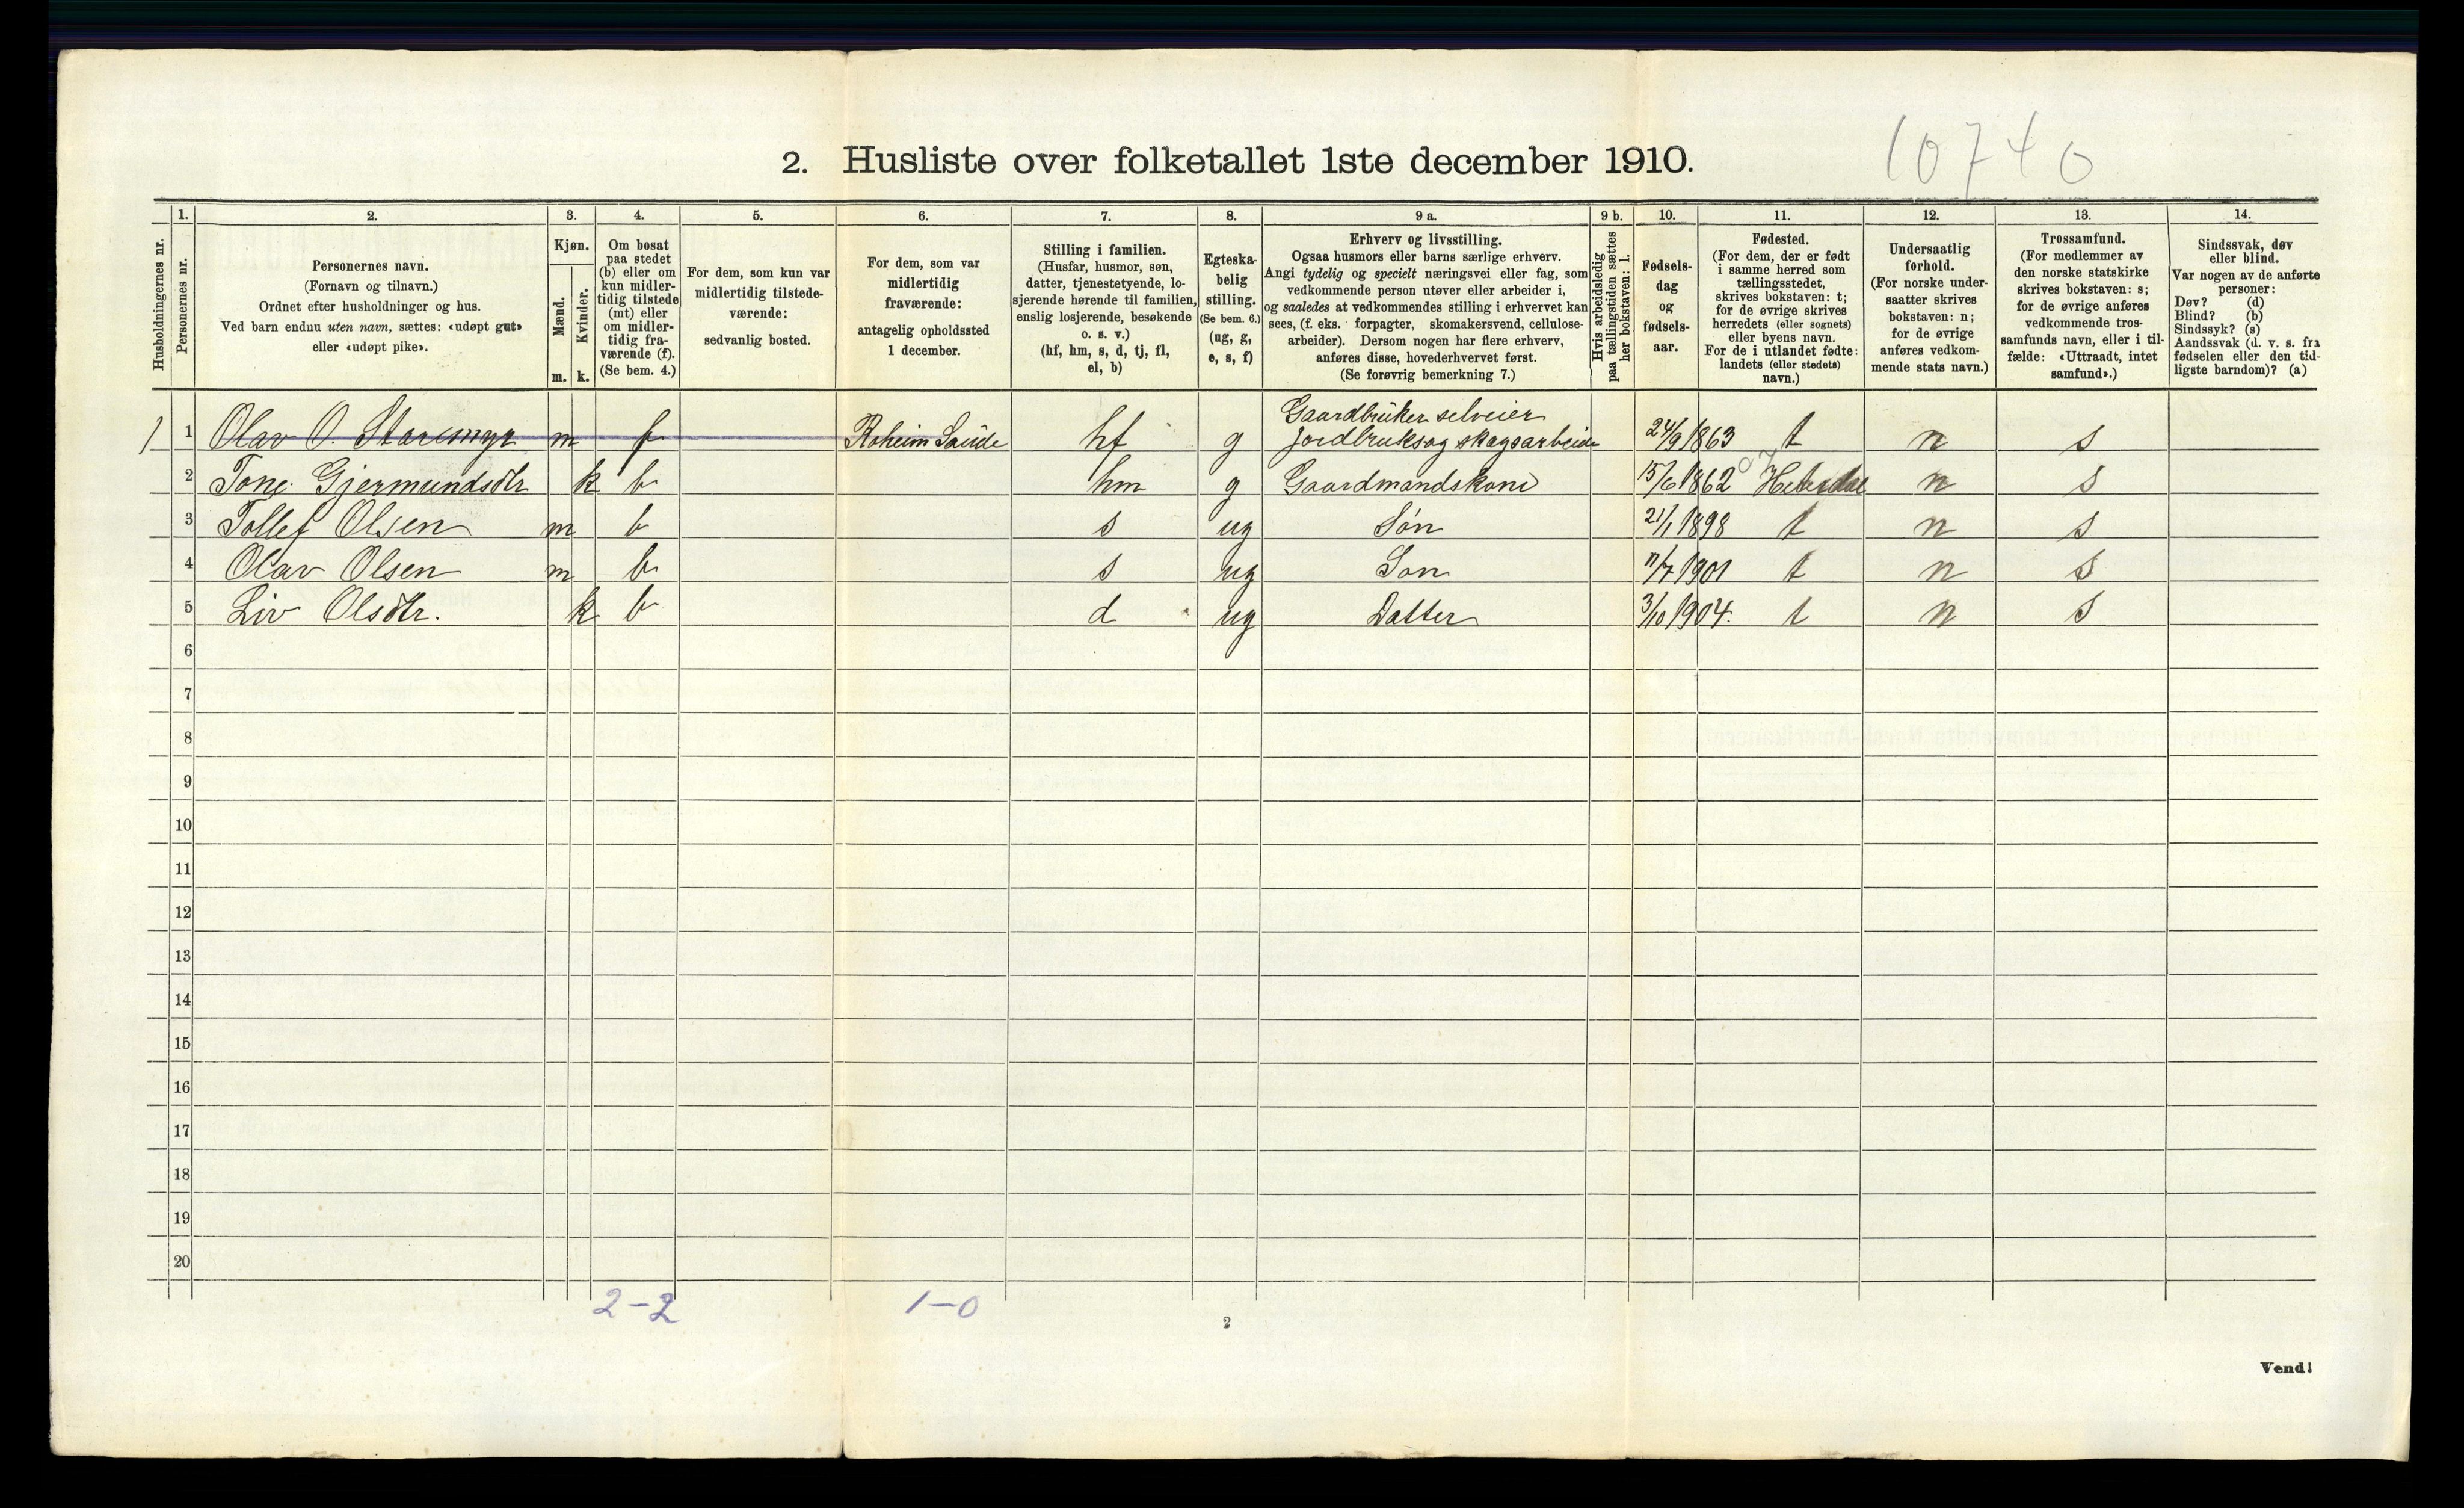 10740
2. Husliste over folketallet 1ste december 1910.
Husholdningernes nr.
1.
Personernes nr.
2.
Personernes navn.
(Fornavn og tilnavn.)
Ordnet efter husholdninger og hus.
Ved barn endnu uten navn, sættes: «udøpt gut»
eller «udøpt pike».
3.
Kjøn.
Mænd.
Kvinder.
m. k.
4.
Om bosat
paa stedet
(b) eller om
kun midler-
tidig tilstede
(mt) eller
om midler-
tidig fra-
værende (f).
(Se bem. 4.)
5.
For dem, som kun var
midlertidig tilstede-
værende:
sedvanlig bosted.
6.
For dem, som var
midlertidig
fraværende:
antagelig opholdssted
1 december.
7.
Stilling i familien.
(Husfar, husmor, søn,
datter, tjenestetyende, lo-
sjerende hørende til familien,
enslig losjerende, besøkende
o. s. v.)
(hf, hm, s, d, tj, fl,
el, b)
8.
Egteska-
belig
stilling.
(Se bem. 6.)
(ug, g,
e, s, f)
9 a.
Erhverv og livsstilling.
Ogsaa husmors eller barns særlige erhverv.
Angi tydelig og specielt næringsvei eller fag, som
vedkommende person utøver eller arbeider i,
og saaledes at vedkommendes stilling i erhvervet kan
sees, (f. eks. forpagter, skomakersvend, cellulose-
arbeider). Dersom nogen har flere erhverv,
anføres disse, hovederhvervet først.
(Se forøvrig bemerkning 7.)
9 b.
Hvis arbeidsledig
paa tællingstiden sættes
her bokstaven: l.
10.
Fødsels-
dag
og
fødsels-
aar.
11.
Fødested.
(For dem, der er født
i samme herred som
tællingsstedet,
skrives bokstaven: t;
for de øvrige skrives
herredets (eller sognets)
eller byens navn.
For de i utlandet fødte:
landets (eller stedets)
navn.)
12.
Undersaatlig
forhold.
(For norske under-
saatter skrives
bokstaven: n;
for de øvrige
anføres vedkom-
mende stats navn.)
13.
Trossamfund.
(For medlemmer av
den norske statskirke
skrives bokstaven: s;
for de øvrige anføres
vedkommende tros-
samfunds navn, eller i til-
fælde: «Uttraadt, intet
samfund».)
14.
Sindssvak, døv
eller blind.
Var nogen av de anførte
personer:
Døv? (d)
Blind? (b)
Sindssyk? (s)
Aandssvak (d. v. s. fra
fødselen eller den tid-
ligste barndom)? (a)
Gaardbruker selveier
1 1 Olav O. m f Roheim Saude hf g jordbruksog skogsarbeide 24/9 1863 t n s
2 Tone Gjermundsdtr k b hm g Gaardmandskone 15/6 1862 n s
3 Tollef Olsen m b s ug Søn 21/1 1898 t n s
4 Olav Olsen m b s ug Søn 11/7 1901 t n s
5 Liv Olsdtr. k b d ug Datter 3/10 1904. t n s
6
7
8
9
10
11
12
13
14
15
16
17
18
19
20
2-2 1-0
2
Vend!